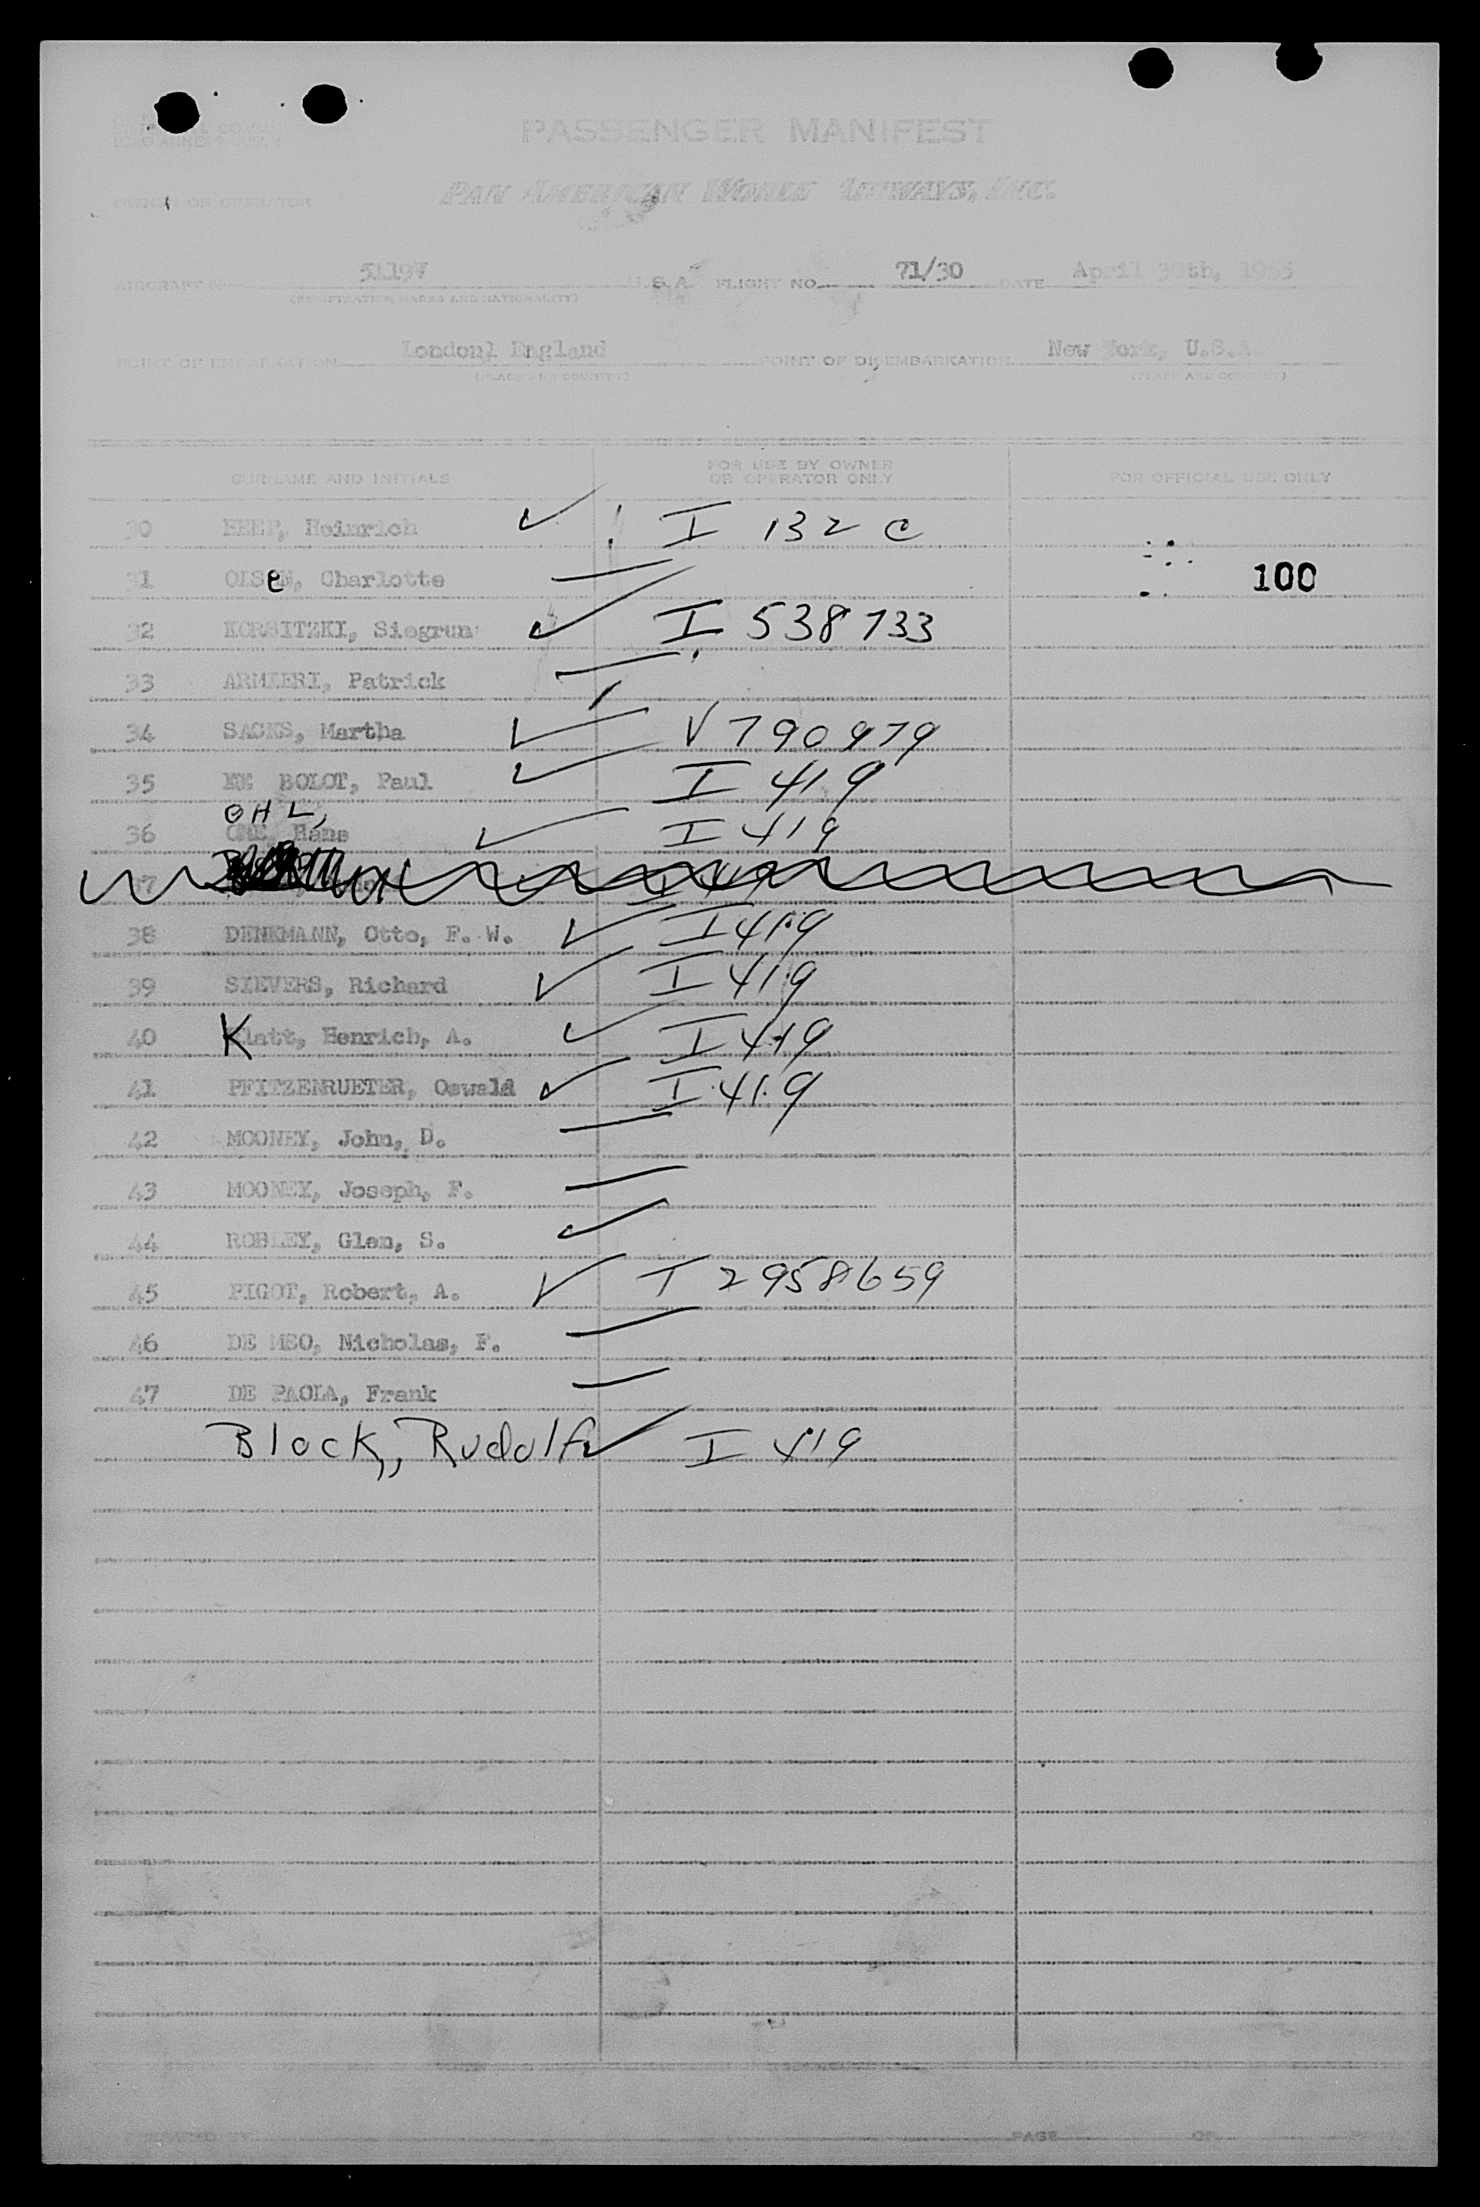 PASSENGER MANIFEST
PAN AMERICAN WORLD AIRWAYS, INC.
OWNER OR OPERATOR
AIRCRAFT 5119V U.S.A. FLIGHT NO. 71/30 DATE April 30th, 1955
(REGISTRATION MARKS AND NATIONALITY)
POINT OF EMBARKATION London, England POINT OF DISEMBARKATION New York, U.S.A.
(PLACE AND COUNTRY) (PLACE AND COUNTRY)
SURNAME AND INITIALS FOR USE BY OWNER OR OPERATOR ONLY FOR OFFICIAL USE ONLY
30 Heinrich I 132 C
31 OLSeN, Charlotte 100
32 KORSITZKI, Siegrun I 538733
33 ARMIERI, Patrick
34 SACKS, Martha V 790979
35 BOLOT, Paul I 419
OHL,
36 Hans I 419
37
38 DENKMANN, Otto, F. W. I 419
39 SIEVERS, Richard I 419
40 Klatt, Henrich, A. I 419
41 PFITZENRUETER, Oswald I 419
42 MOONEY, John, D.
43 MOONEY, Joseph, F.
44 ROBLEY, Glen, S.
45 PIGOT, Robert, A. I 2958659
46 DE MEO, Nicholas, F.
47 DE PAOLA, Frank
Block, Rudolf I 419
PAGE OF